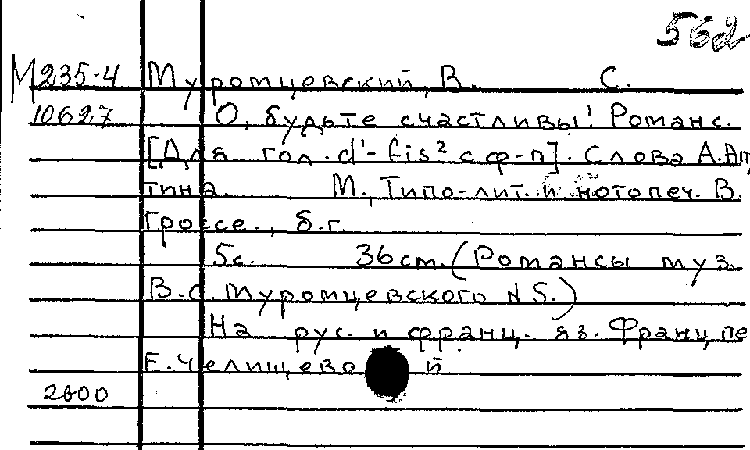 562
М235-4 Муромцевский, В. С.
10627 О, будьте счастливы! Романс.
[Для гол. d'-fis² с ф-п]. Слова А.Ап
тина. М., Типо-лит. и нотопеч. В.
Гроссе., б.г.
5с. 36см. (Романсы муз.
В.С. Муромцевского N 5.)
На рус. и франц. яз. Франц пе
Е. Челищево й
2600